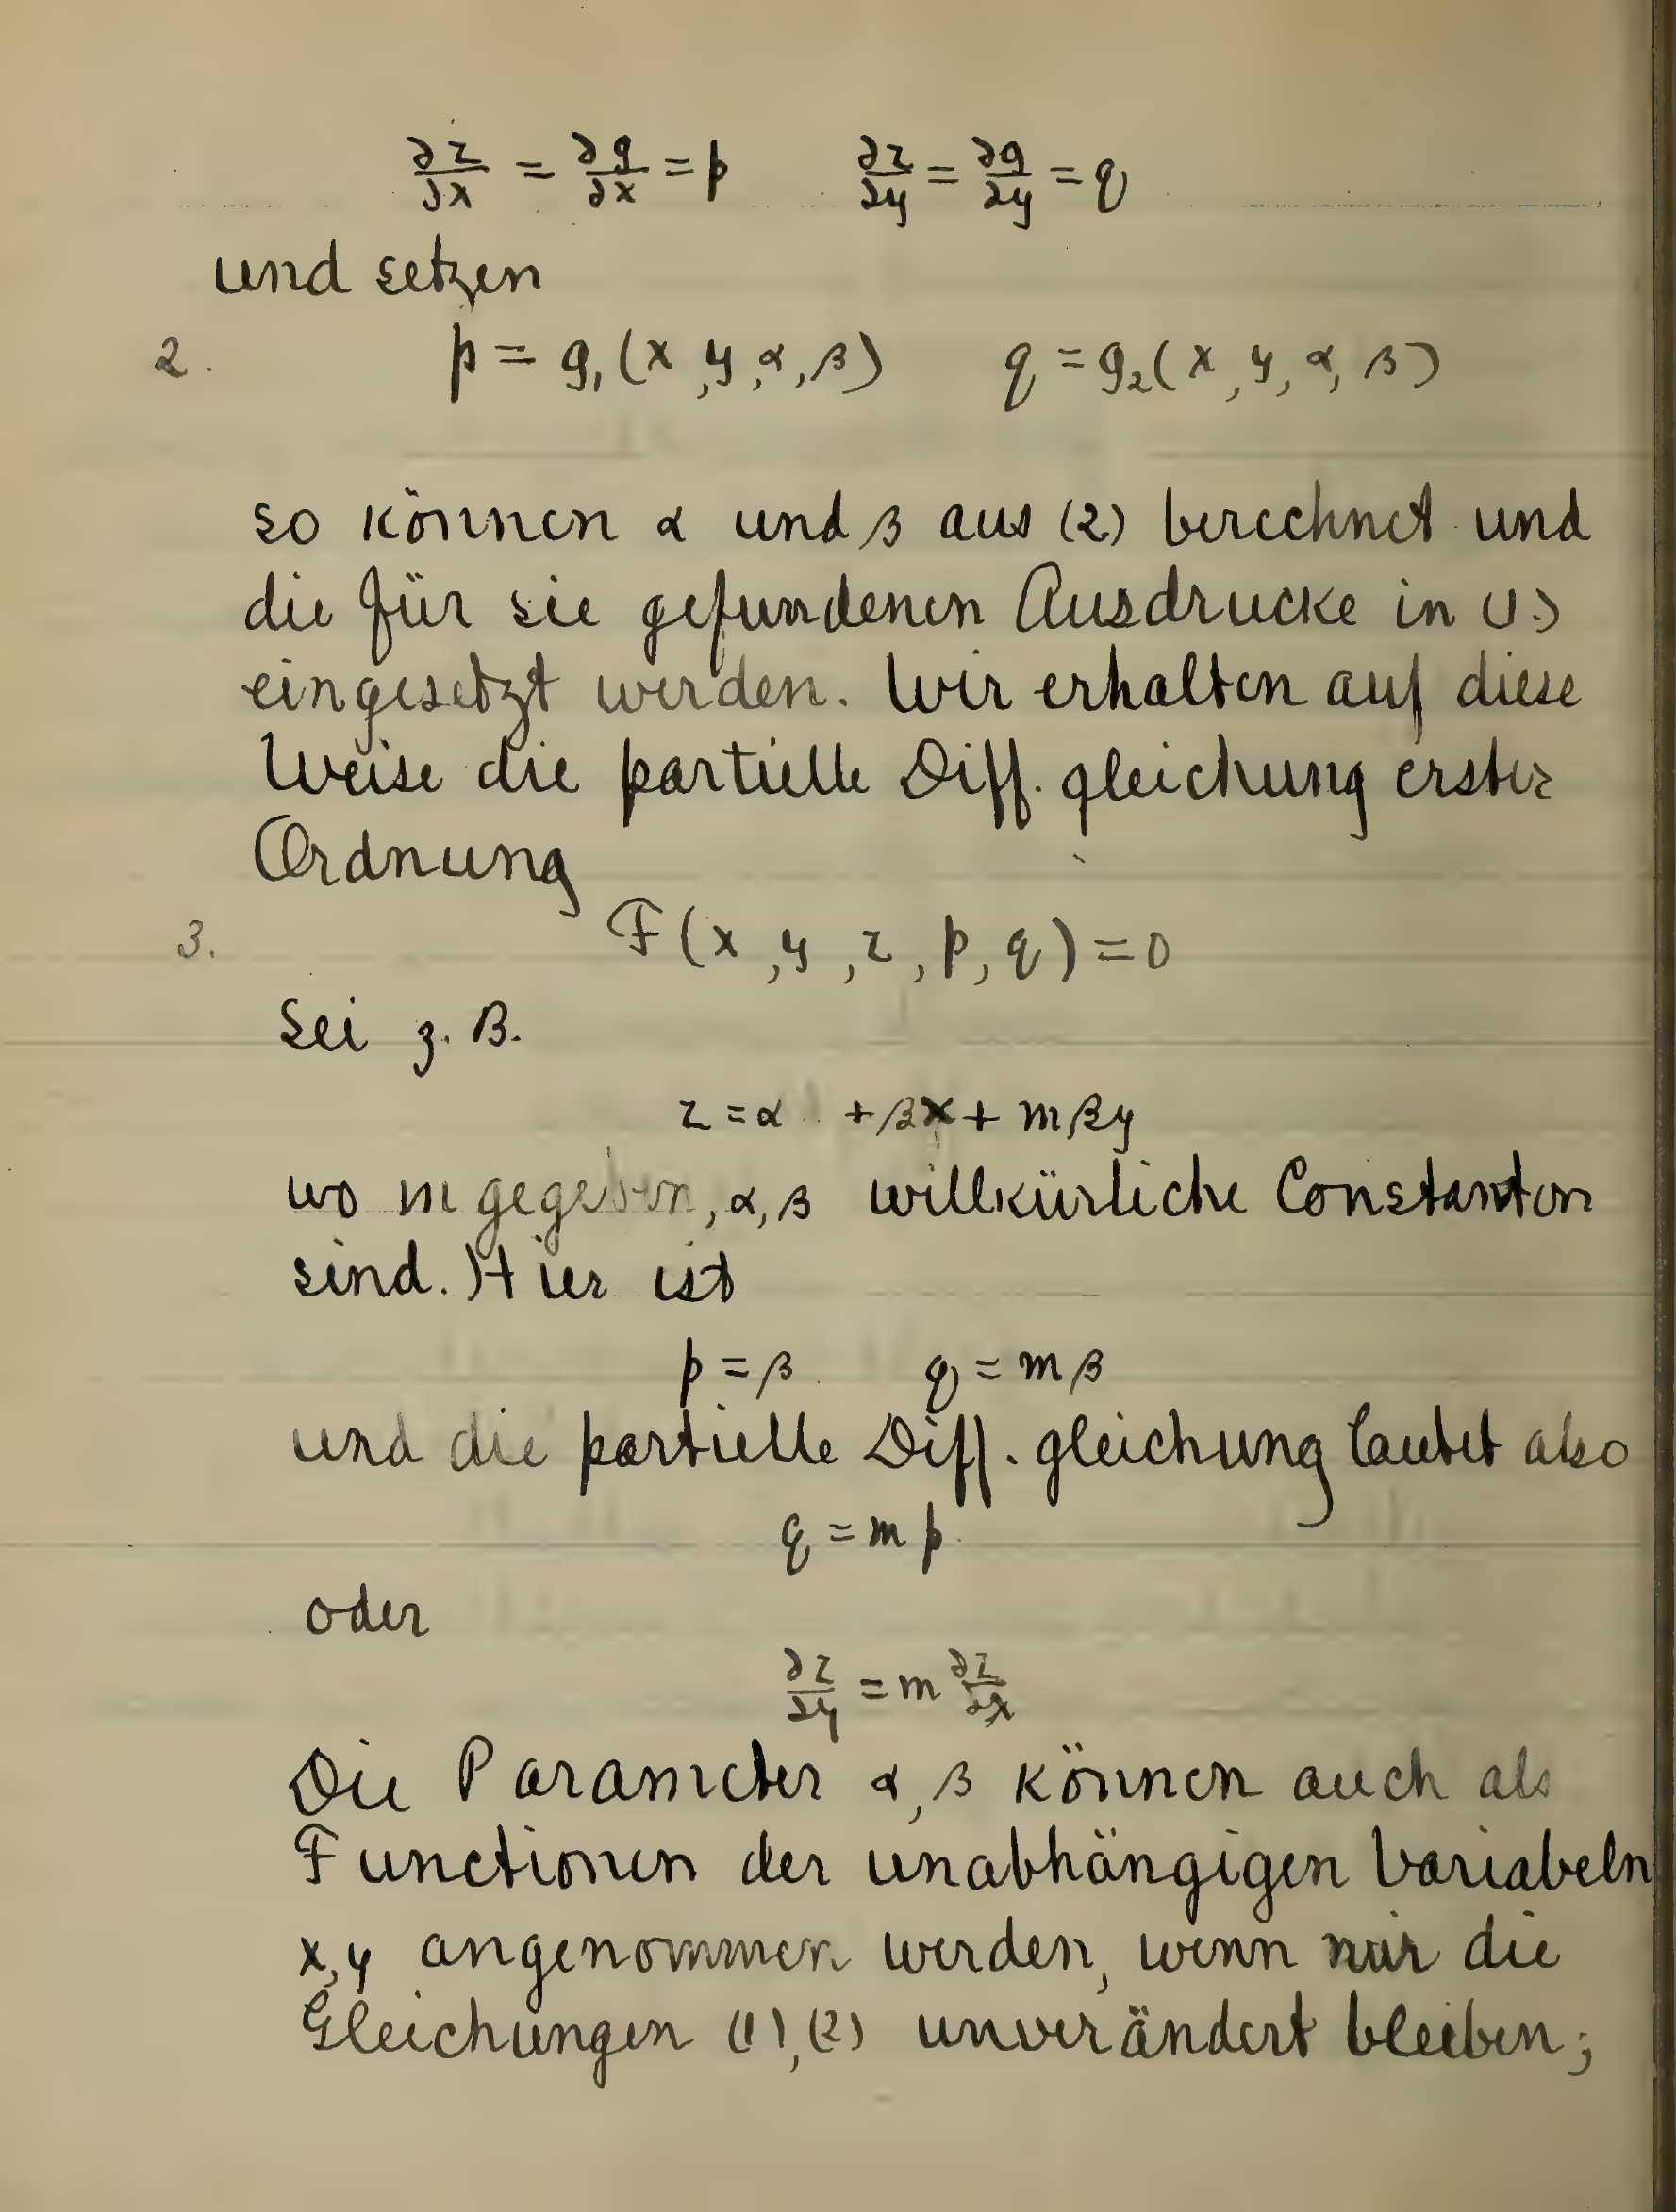 ∂z/∂x = ∂g/∂x = p   ∂z/∂y = ∂g/∂y = q
und setzen
2. p = g₁(x, y, α, β)   q = g₂(x, y, α, β)
so können α und β aus (2) berechnet und
die für sie gefundenen Ausdrucke in (1.)
eingesetzt werden. Wir erhalten auf diese
Weise die partielle Diff. gleichung erster
Ordnung
3. F(x, y, z, p, q) = 0
Sei z. B.
z = α + βx + mβy
wo m gegeben, α, β willkürliche Constanten
sind. Hier ist
p = β   q = mβ
und die partielle Diff. gleichung lautet also
q = mp
oder
∂z/∂y = m ∂z/∂x
Die Parameter α, β können auch als
Functionen der unabhängigen Variabeln
x, y angenommen werden, wenn nur die
Gleichungen (1), (2) unverändert bleiben;